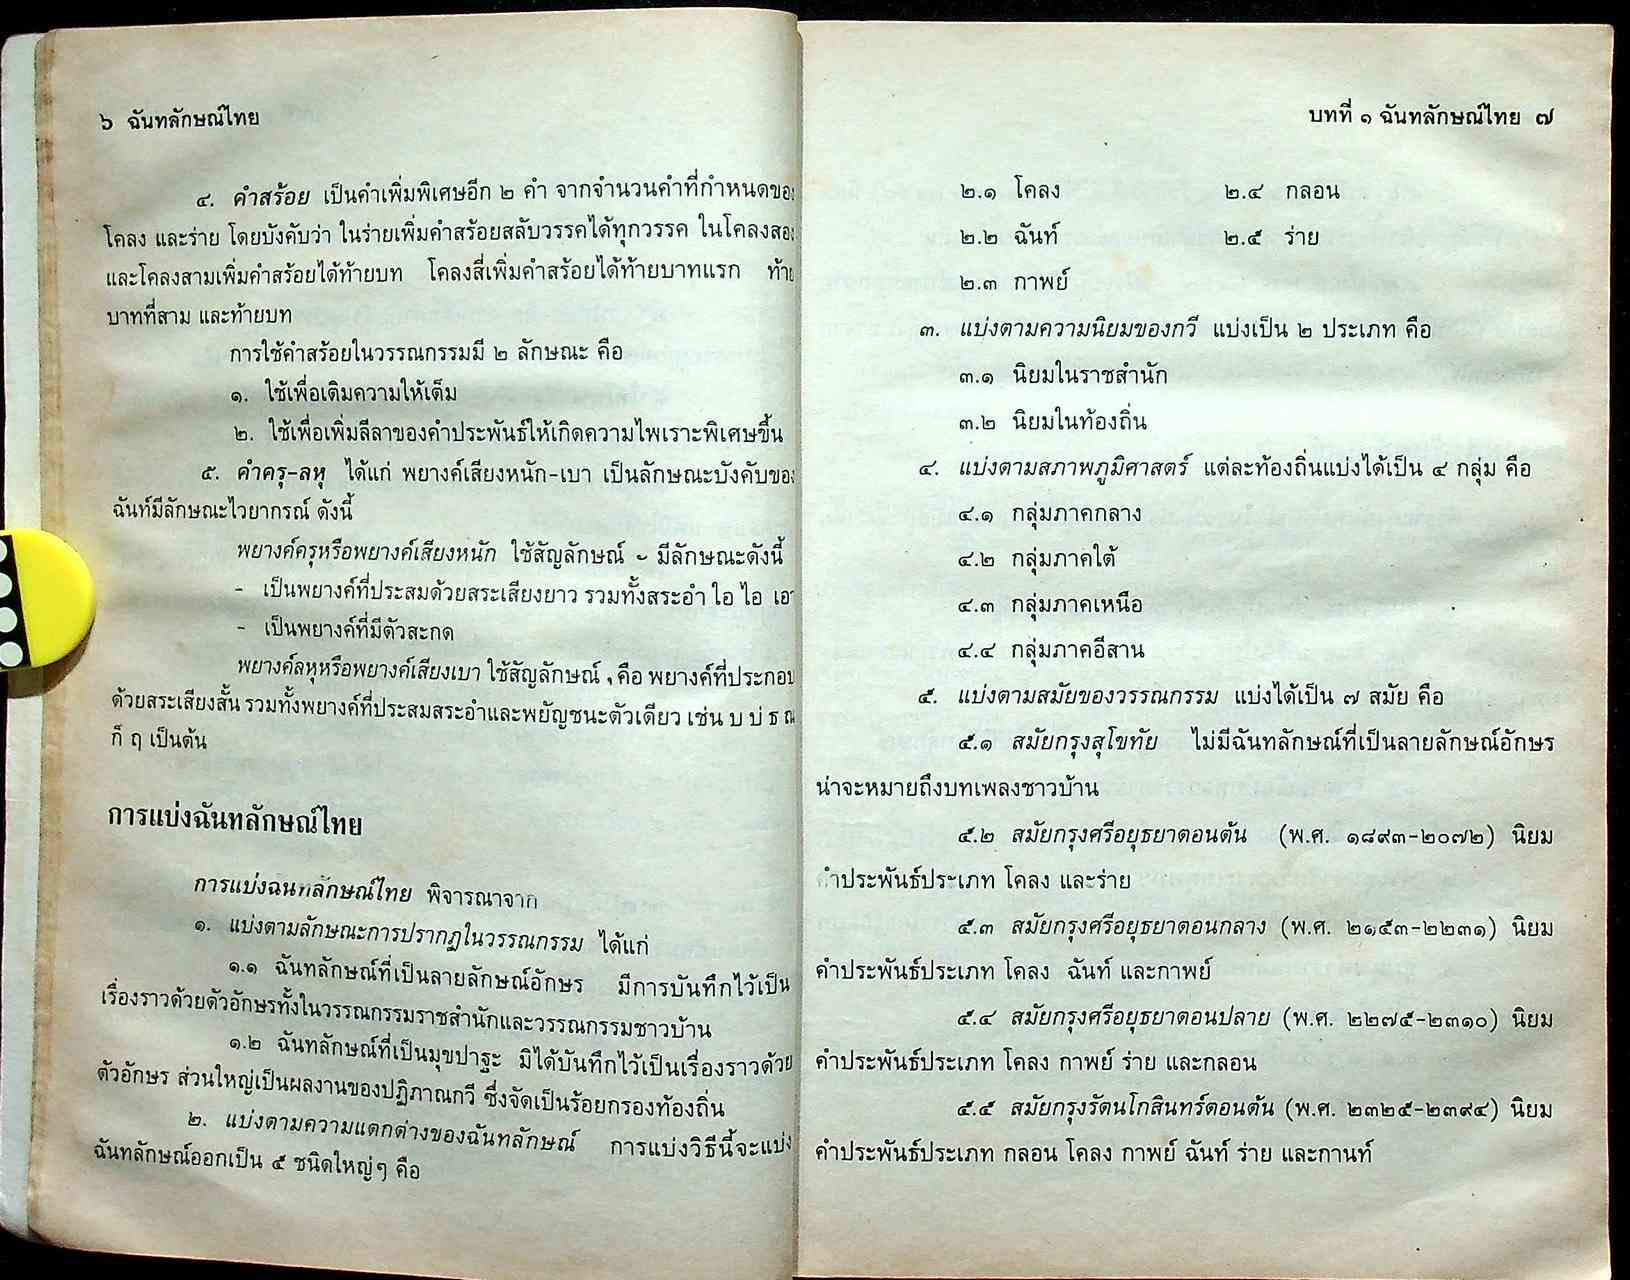 ๖ ฉันทลักษณ์ไทย
๔. คำสร้อย เป็นคำเพิ่มพิเศษอีก ๒ คำ จากจำนวนคำที่กำหนดของ
โคลง และร่าย โดยบังคับว่า ในร่ายเพิ่มคำสร้อยสลับวรรคได้ทุกวรรค ในโคลงสอง
และโคลงสามเพิ่มคำสร้อยได้ท้ายบท โคลงสี่เพิ่มคำสร้อยได้ท้ายบาทแรก ท้าย
บาทที่สาม และท้ายบท
การใช้คำสร้อยในวรรณกรรมมี ๒ ลักษณะ คือ
๑. ใช้เพื่อเติมความให้เต็ม
๒. ใช้เพื่อเพิ่มลีลาของคำประพันธ์ให้เกิดความไพเราะพิเศษขึ้น
๕. คำครุ-ลหุ ได้แก่ พยางค์เสียงหนัก-เบา เป็นลักษณะบังคับของ
ฉันท์มีลักษณะไวยากรณ์ ดังนี้
พยางค์ครุหรือพยางค์เสียงหนัก ใช้สัญลักษณ์ ั มีลักษณะดังนี้
- เป็นพยางค์ที่ประสมด้วยสระเสียงยาว รวมทั้งสระอำ ไอ ไอ เอา
- เป็นพยางค์ที่มีตัวสะกด
พยางค์ลหุหรือพยางค์เสียงเบา ใช้สัญลักษณ์ ุ คือ พยางค์ที่ประกอบ
ด้วยสระเสียงสั้น รวมทั้งพยางค์ที่ประสมสระอำและพยัญชนะตัวเดียว เช่น บ บ่ ธ ณ
ก็ ฤ เป็นต้น
การแบ่งฉันทลักษณ์ไทย
การแบ่งฉันทลักษณ์ไทย พิจารณาจาก
๑. แบ่งตามลักษณะการปรากฏในวรรณกรรม ได้แก่
๑.๑ ฉันทลักษณ์ที่เป็นลายลักษณ์อักษร มีการบันทึกไว้เป็น
เรื่องราวด้วยตัวอักษรทั้งในวรรณกรรมราชสำนักและวรรณกรรมชาวบ้าน
๑.๒ ฉันทลักษณ์ที่เป็นมุขปาฐะ มิได้บันทึกไว้เป็นเรื่องราวด้วย
ตัวอักษร ส่วนใหญ่เป็นผลงานของปฏิภาณกวี ซึ่งจัดเป็นร้อยกรองท้องถิ่น
๒. แบ่งตามความแตกต่างของฉันทลักษณ์ การแบ่งวิธีนี้จะแบ่ง
ฉันทลักษณ์ออกเป็น ๕ ชนิดใหญ่ๆ คือ
บทที่ ๑ ฉันทลักษณ์ไทย ๗
๒.๑ โคลง ๒.๔ กลอน
๒.๒ ฉันท์ ๒.๕ ร่าย
๒.๓ กาพย์
๓. แบ่งตามความนิยมของกวี แบ่งเป็น ๒ ประเภท คือ
๓.๑ นิยมในราชสำนัก
๓.๒ นิยมในท้องถิ่น
๔. แบ่งตามสภาพภูมิศาสตร์ แต่ละท้องถิ่นแบ่งได้เป็น ๔ กลุ่ม คือ
๔.๑ กลุ่มภาคกลาง
๔.๒ กลุ่มภาคใต้
๔.๓ กลุ่มภาคเหนือ
๔.๔ กลุ่มภาคอีสาน
๕. แบ่งตามสมัยของวรรณกรรม แบ่งได้เป็น ๗ สมัย คือ
๕.๑ สมัยกรุงสุโขทัย ไม่มีฉันทลักษณ์ที่เป็นลายลักษณ์อักษร
น่าจะหมายถึงบทเพลงชาวบ้าน
๕.๒ สมัยกรุงศรีอยุธยาตอนต้น (พ.ศ. ๑๘๙๓-๒๐๗๒) นิยม
คำประพันธ์ประเภท โคลง และร่าย
๕.๓ สมัยกรุงศรีอยุธยาตอนกลาง (พ.ศ. ๒๑๕๓-๒๒๓๑) นิยม
คำประพันธ์ประเภท โคลง ฉันท์ และกาพย์
๕.๔ สมัยกรุงศรีอยุธยาตอนปลาย (พ.ศ. ๒๒๗๕-๒๓๑๐) นิยม
คำประพันธ์ประเภท โคลง กาพย์ ร่าย และกลอน
๕.๕ สมัยกรุงรัตนโกสินทร์ตอนต้น (พ.ศ. ๒๓๒๕-๒๓๙๔) นิยม
คำประพันธ์ประเภท กลอน โคลง กาพย์ ฉันท์ ร่าย และกานท์